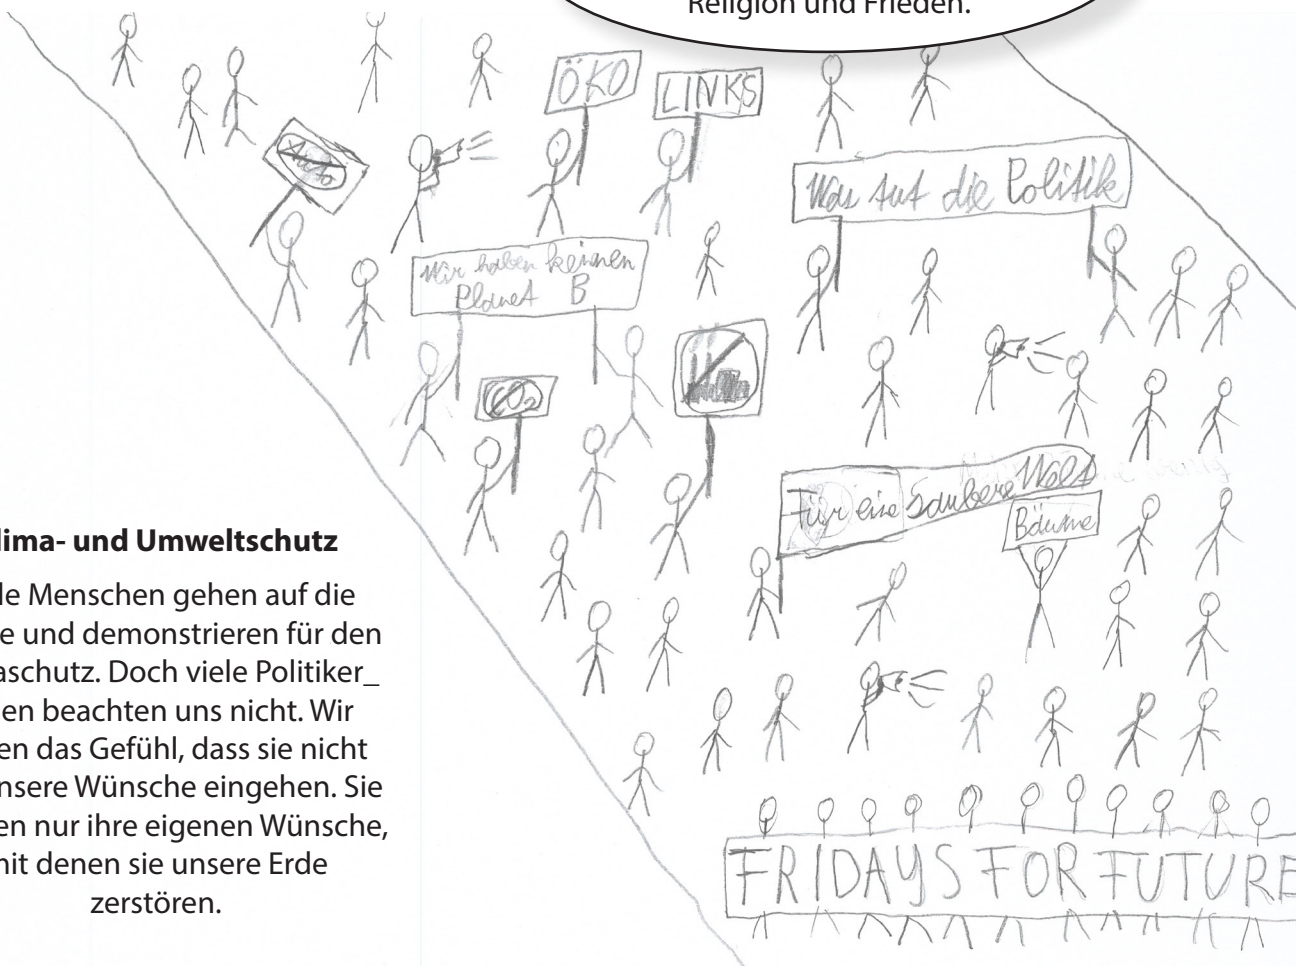 Religion und Frieden.
ÖKO
LINKS
Auto
Was tut die Politik
Wir haben keinen
Planet B
CO₂
Für eine saubere Welt
Bäume
lima- und Umweltschutz
le Menschen gehen auf die
e und demonstrieren für den
aschutz. Doch viele Politiker_
en beachten uns nicht. Wir
en das Gefühl, dass sie nicht
nsere Wünsche eingehen. Sie
en nur ihre eigenen Wünsche,
it denen sie unsere Erde
zerstören.
FRIDAYS FOR FUTURE